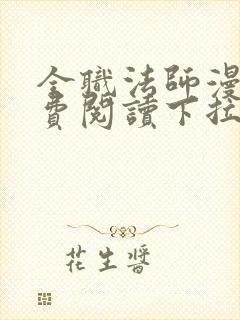 全職法師漫
費閱讀下拉
花生醬